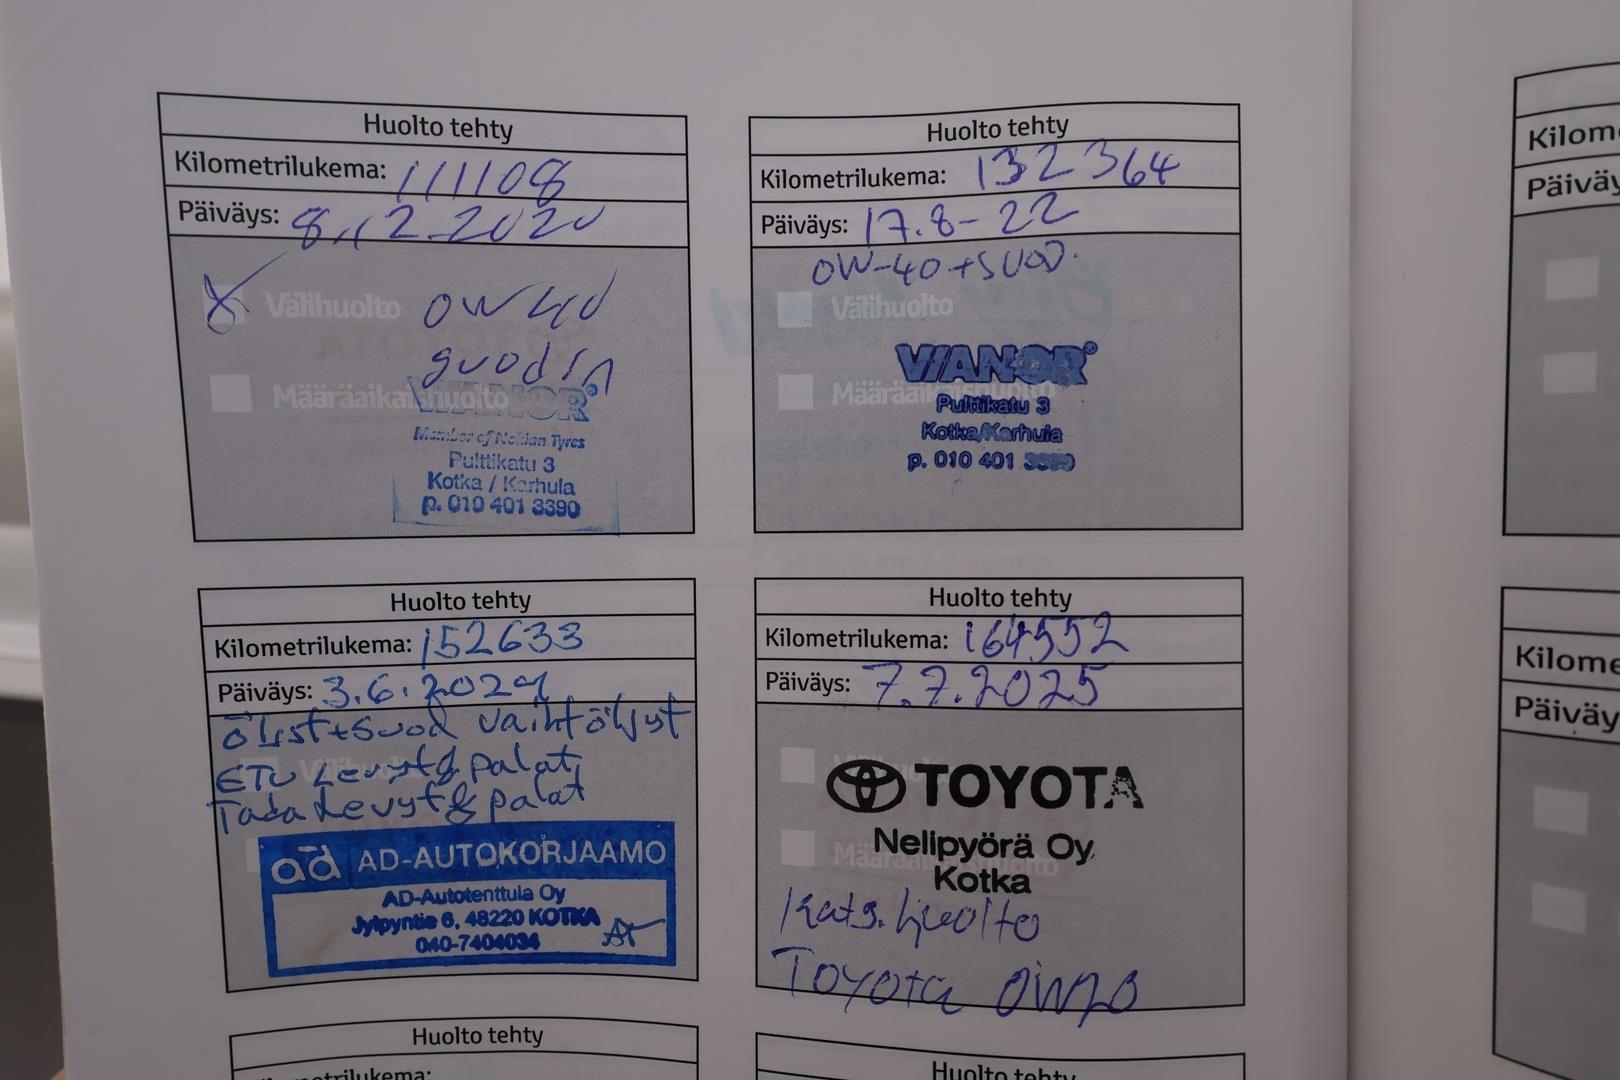 Huolto tehty
Kilometrilukema: 111108
Päiväys: 8.12.2020
Välihuolto 0W40
Määräaikaishuolto
VIANOR
Member of Nokian Tyres
Pulttikatu 3
Kotka / Karhula
p. 010 401 3390
Huolto tehty
Kilometrilukema: 132364
Päiväys: 17.8-22
0W-40+SUOD.
Välihuolto
Määräaikaishuolto
VIANOR
Pulttikatu 3
Kotka/Karhula
p. 010 401 3390
Huolto tehty
Kilometrilukema: 152633
Päiväys: 3.6.2024
öljyt+suod vaiht öljyt
ETU Levyt & palat,
Taka Levyt & palat
ad AD-AUTOKORJAAMO
AD-Autotenttula Oy
Jylpyntie 6, 48220 KOTKA
040-7404034
Huolto tehty
Kilometrilukema: 164552
Päiväys: 7.7.2025
Välihuolto
TOYOTA
Määräaikaishuolto
Nelipyörä Oy
Kotka
Kats. huolto
Toyota 0W20
Huolto tehty
Kilometrilukema:
Huolto tehty
Kilome
Päiväy
Kilome
Päiväy